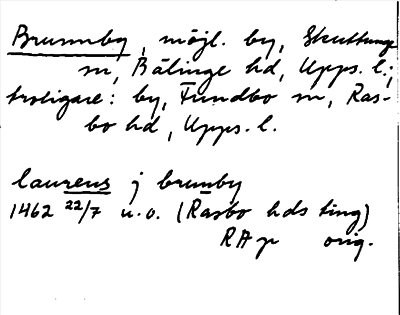 Brunnby, möjl. by, Skuttunge
sn, Bälinge hd, Upps. l.;
troligare: by, Funbo sn, Ras-
bo hd, Upps. l.
laurens j brunby
1462 22/7 u.o. (Rasbo hds ting)
RAp orig.